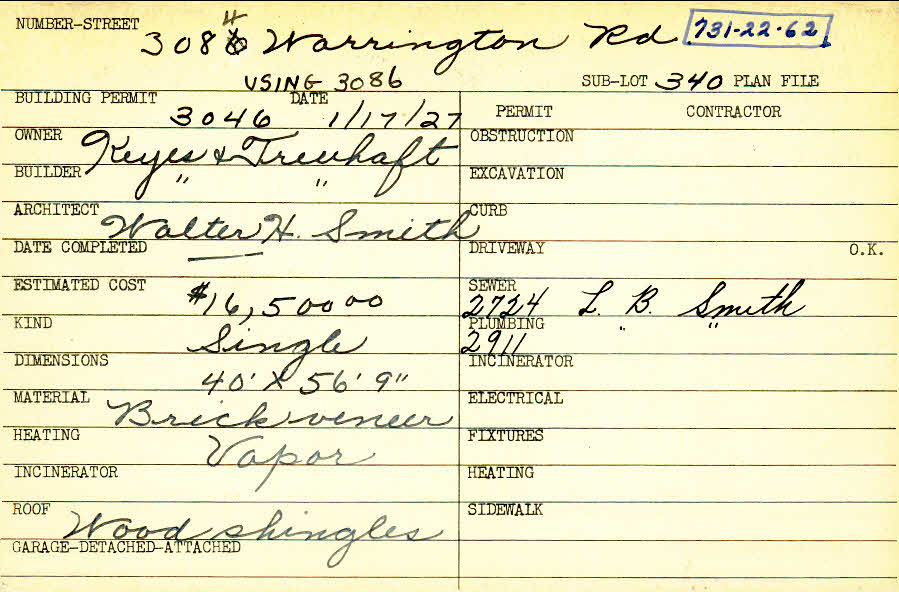 NUMBER-STREET 3084 Warrington Rd 731-22-62
USING 3086 SUB-LOT 340 PLAN FILE
BUILDING PERMIT 3046 DATE 1/17/27 PERMIT CONTRACTOR
OWNER Keyes & Treuhaft OBSTRUCTION
BUILDER " " EXCAVATION
ARCHITECT Walter H. Smith CURB
DATE COMPLETED DRIVEWAY O.K.
ESTIMATED COST $16,500 00 SEWER 2724 L. B. Smith
KIND Single PLUMBING 2911 " "
DIMENSIONS 40' X 56' 9" INCINERATOR
MATERIAL Brick veneer ELECTRICAL
HEATING Vapor FIXTURES
INCINERATOR HEATING
ROOF Wood shingles SIDEWALK
GARAGE-DETACHED-ATTACHED